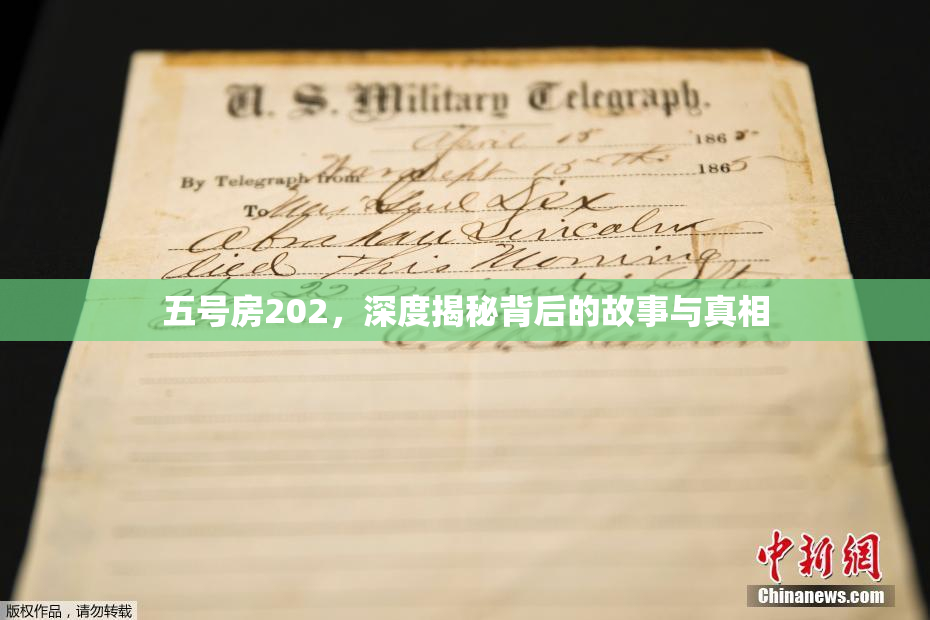 U. S. Military Telegraph.
April 15 1865
By Telegraph from War Dept 15th 1865
To Maj Genl Dix
Abraham Lincoln
died This Morning
at 22 minutes after
五号房202，深度揭秘背后的故事与真相
E. M. Stanton
中新网
Chinanews.com
版权作品，请勿转载